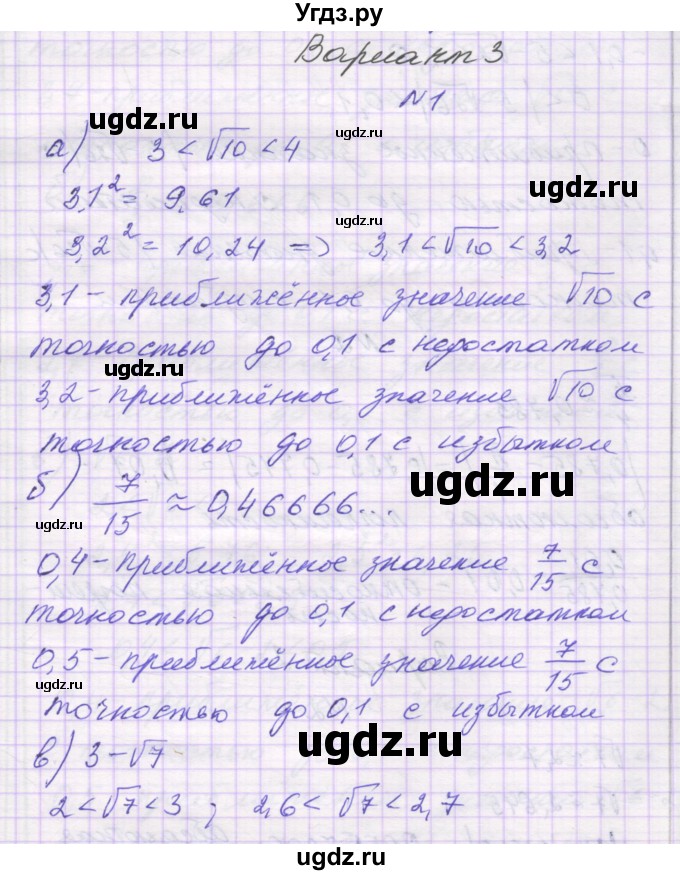 Угдз.ру
Вариант 3
№1
а) 3 < √10 < 4
3,1² = 9,61
3,2² = 10,24 => 3,1 < √10 < 3,2
3,1 - приближённое значение √10 с
точностью до 0,1 с недостатком
3,2 - приближённое значение √10 с
точностью до 0,1 с избытком
б) 7/15 ≈ 0,46666...
0,4 - приближённое значение 7/15 с
точностью до 0,1 с недостатком
0,5 - приближённое значение 7/15 с
точностью до 0,1 с избытком
в) 3 - √7
2 < √7 < 3 ; 2,6 < √7 < 2,7
ugdz.ru
ugdz.ru
ugdz.ru
ugdz.ru
ugdz.ru
ugdz.ru
ugdz.ru
ugdz.ru
ugdz.ru
ugdz.ru
ugdz.ru